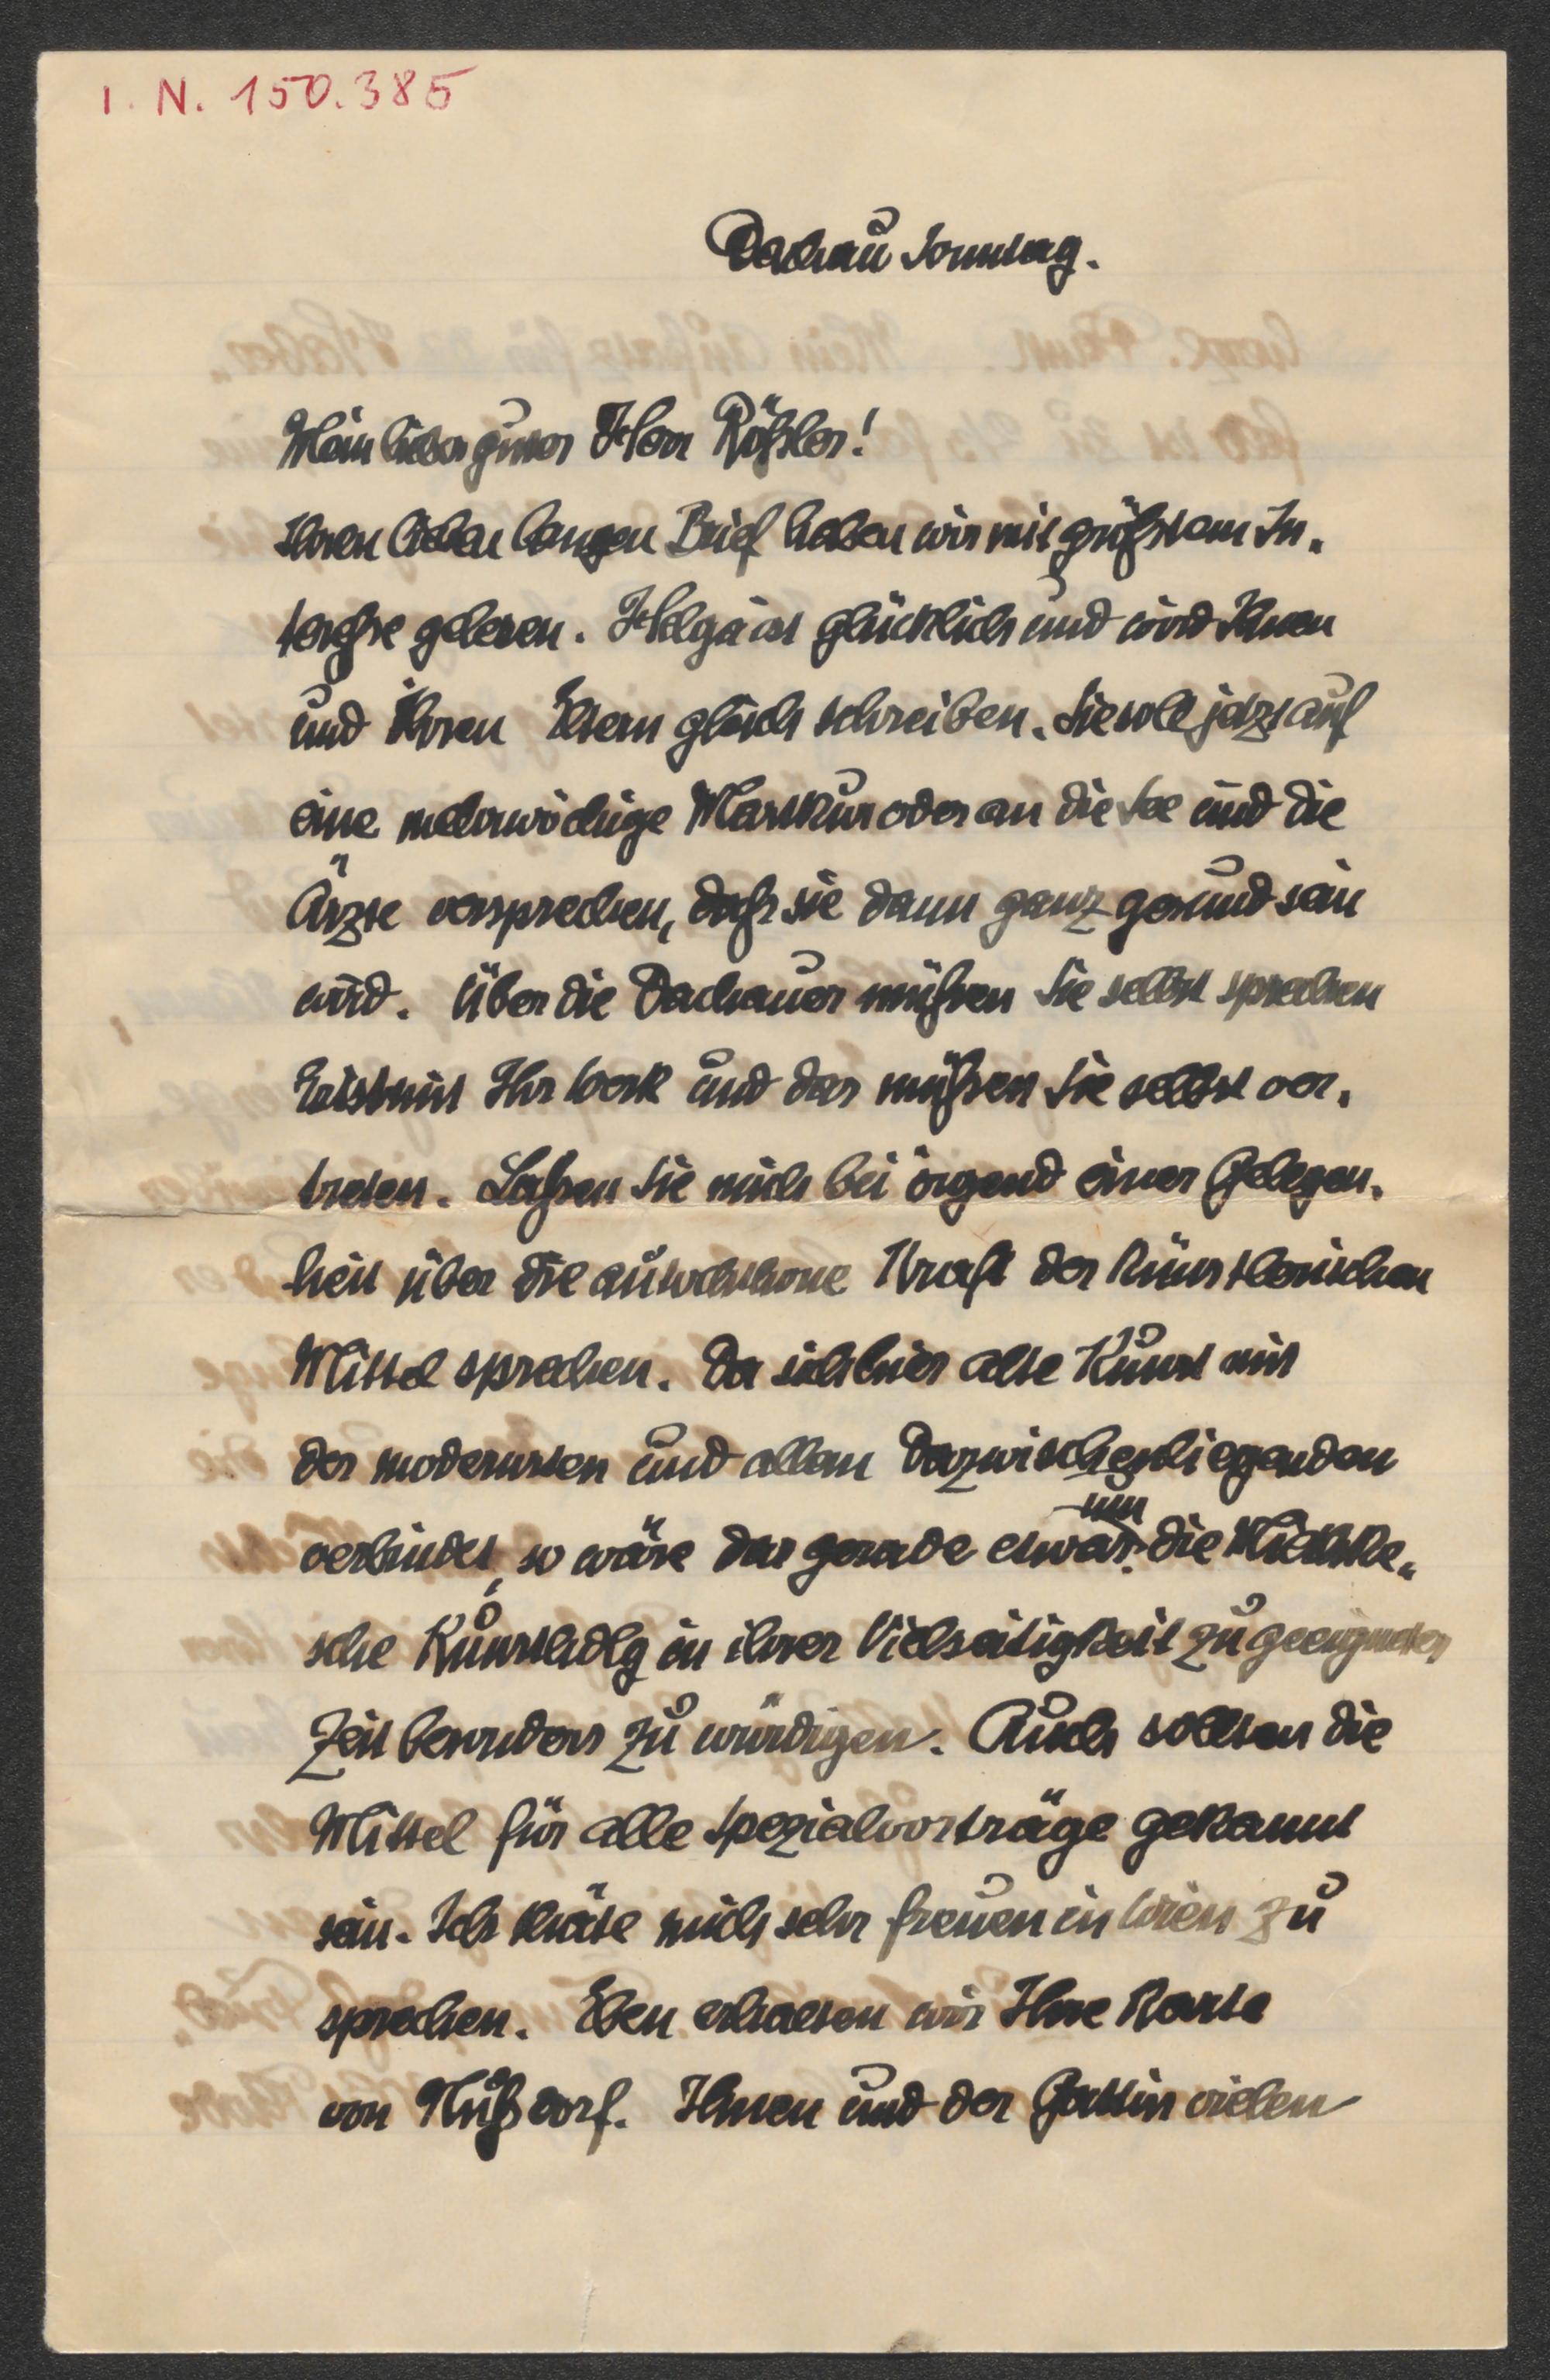 I. N. 150.385
Dachau Sonntag.
Mein lieber guter Herr Rößler!
Ihren lieben langen Brief haben wir mit größtem In-
teresse gelesen. Helga ist glücklich und wird Ihnen
und Ihren Eltern gleich schreiben. Sie soll jetzt auf
eine mehrwöchige Mastkur oder an die See und die
Ärzte versprechen, daß sie dann ganz gesund sein
wird. Über die Dachauer müßen Sie selbst sprechen
Ihr Werk und das müßen Sie selbst ver-
treten. Laßen Sie mich bei irgend einer Gelegen-
heit über die Kraft der künstlerischen
Mittel sprechen. Da sich hier alte Kunst mit
der modernsten und allem dazwischenliegenden
verbindet, so wäre das gerade etwas um die Miethke-
sche Kunsthdlg in ihrer Vielseitigkeit zu geeigneter
Zeit besonders zu würdigen. Auch sollten die
Mittel für alle Spezialvorträge gekannt
sein. Ich thäte mich sehr freuen in Wien zu
sprechen. Eben erhalten wir Ihre Karte
von Nußdorf. Ihnen und der Gattin vielen